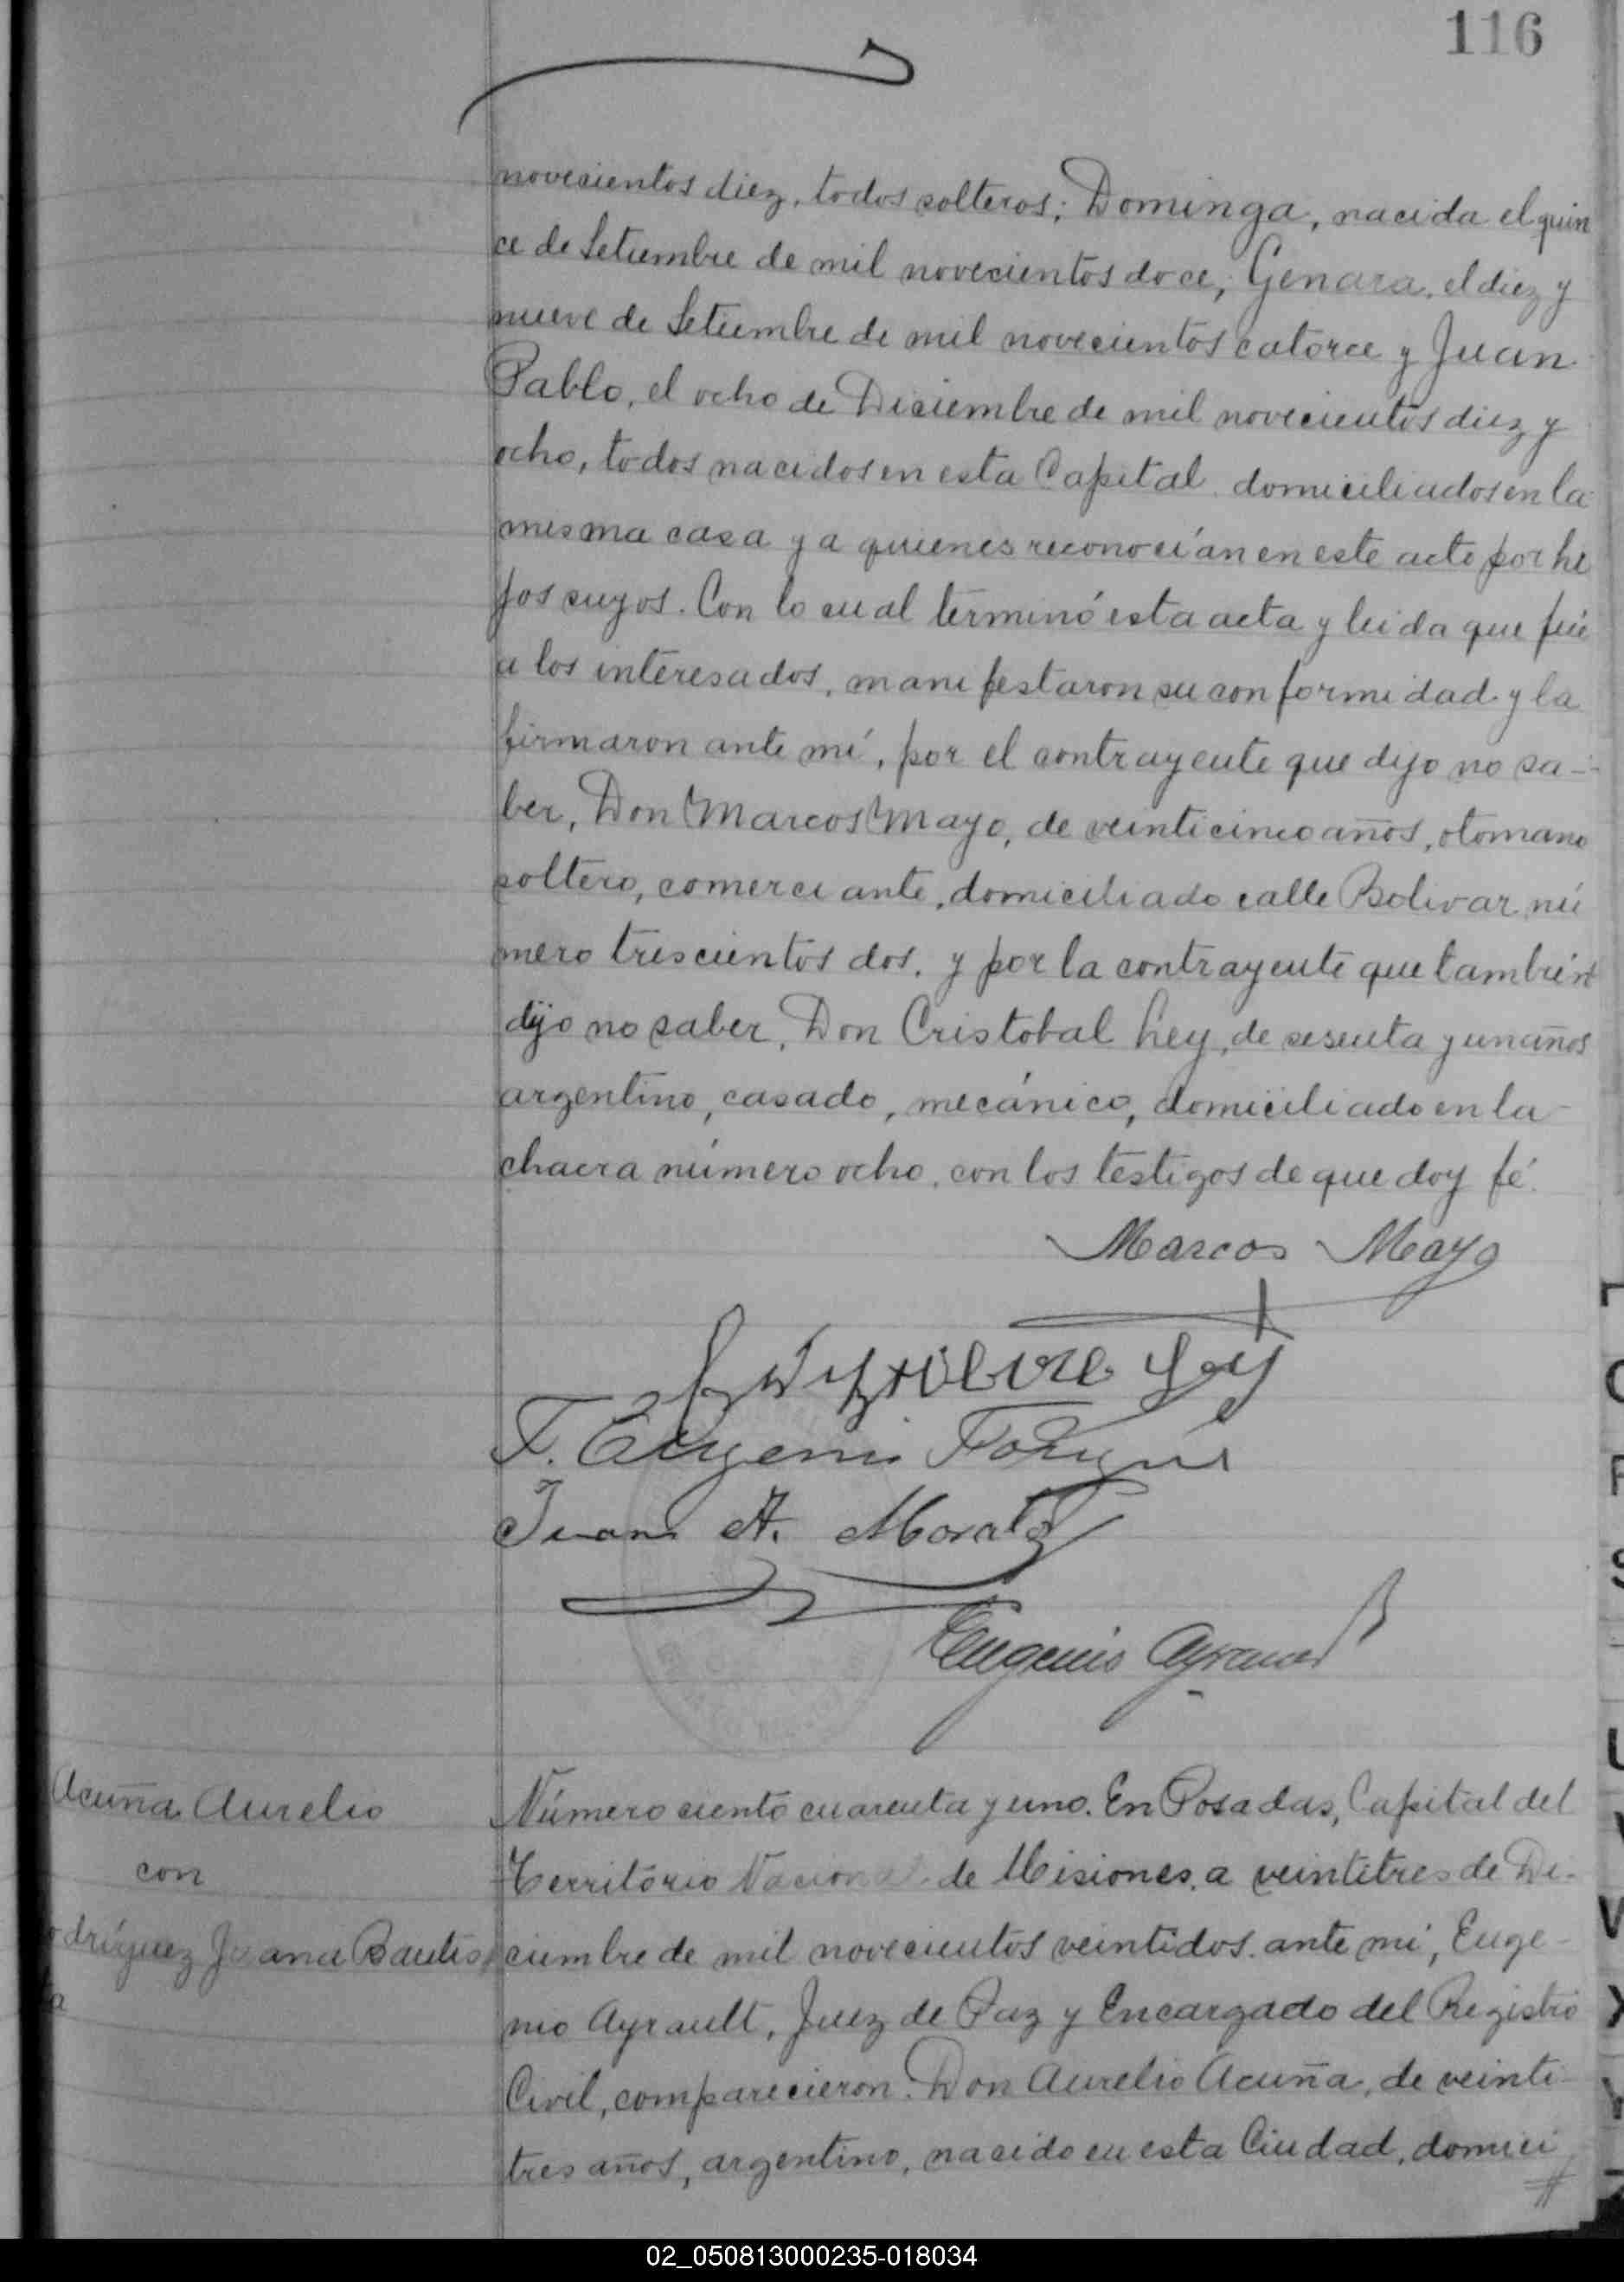 116
novecientos diez, todos solteros; Dominga, nacida el quin
ce de Setiembre de mil novecientos doce, Genara, el diez y
nueve de Setiembre de mil novecientos catorce y Juan
Pablo, el ocho de Diciembre de mil novecientos diez y
ocho, todos nacidos en esta Capital domiciliados en la
misma casa y a quienes reconocían en este acto por hi
jos suyos. Con lo cual terminó esta acta y leida que fué
a los interesados, manifestaron su conformidad y la
firmaron ante mí, por el contrayente que dijo no sa-
ber, Don Marcos Mayo, de veinticinco años, otomano
soltero, comerciante, domiciliado calle Bolivar nú
mero trescientos dos, y por la contrayente que también
dijo no saber, Don Cristobal Ley, de sesenta y un años
argentino, casado, mecánico, domiciliado en la
chacra número ocho, con los testigos de que doy fé.
Marcos Mayo
Ley
F. Eugenio
Juan A.
Eugenio Ayrault
Acuña Aurelio
con
odríguez Juana Bautis
ta
Número ciento cuarenta y uno. En Posadas, Capital del
Territorio Nacional de Misiones, a veintitres de Di-
ciembre de mil novecientos veintidos, ante mi, Euge-
nio Ayrault, Juez de Paz y Encargado del Registro
Civil, comparecieron: Don Aurelio Acuña, de veinti-
tres años, argentino, nacido en esta Ciudad, domici
02_050813000235-018034